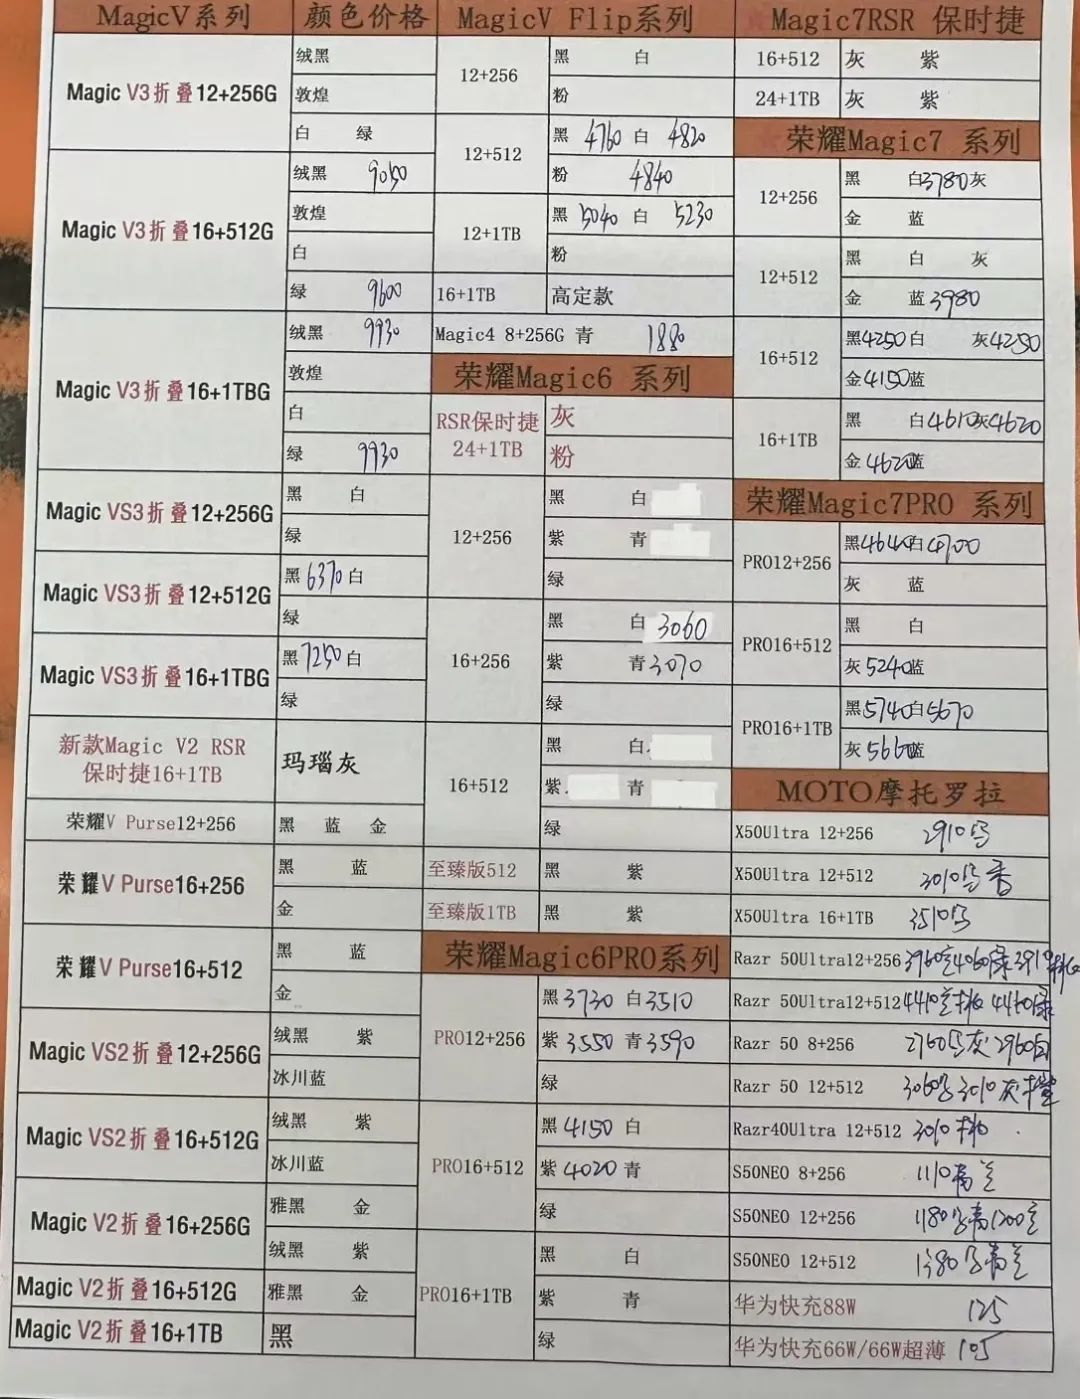 MagicV系列 颜色价格
Magic V3折叠12+256G
绒黑
敦煌
白 绿
Magic V3折叠16+512G
绒黑 9050
敦煌
白
绿 9600
Magic V3折叠16+1TBG
绒黑 9930
敦煌
白
绿 9930
Magic VS3折叠12+256G
黑 白
绿
Magic VS3折叠12+512G
黑 6370 白
绿
Magic VS3折叠16+1TBG
黑 7250 白
绿
新款Magic V2 RSR
保时捷16+1TB
玛瑙灰
荣耀V Purse12+256 黑 蓝 金
荣耀V Purse16+256
黑 蓝
金
荣耀V Purse16+512
黑 蓝
金
Magic VS2折叠12+256G
绒黑 紫
冰川蓝
Magic VS2折叠16+512G
绒黑 紫
冰川蓝
Magic V2折叠16+256G
雅黑 金
绒黑 紫
Magic V2折叠16+512G 雅黑 金
Magic V2折叠16+1TB 黑
MagicV Flip系列
12+256
黑 白
粉
12+512
黑 4760 白 4820
粉 4840
12+1TB
黑 5040 白 5230
粉
16+1TB 高定款
Magic4 8+256G 青 1880
荣耀Magic6 系列
RSR保时捷
24+1TB
灰
粉
12+256
黑 白
紫 青
绿
16+256
黑 白 3060
紫 青 3070
绿
16+512
黑 白
紫 青
绿
至臻版512 黑 紫
至臻版1TB 黑 紫
荣耀Magic6PRO系列
PRO12+256
黑 3730 白 3510
紫 3550 青 3590
绿
PRO16+512
黑 4150 白
紫 4020 青
绿
PRO16+1TB
黑 白
紫 青
绿
Magic7RSR 保时捷
16+512 灰 紫
24+1TB 灰 紫
荣耀Magic7 系列
12+256
黑 白 3780 灰
金 蓝
12+512
黑 白 灰
金 蓝 3980
16+512
黑 4250 白 灰 4250
金 4150 蓝
16+1TB
黑 白 4610 灰 4620
金 4620 蓝
荣耀Magic7PRO 系列
PRO12+256
黑 4640 白 4700
灰 蓝
PRO16+512
黑 白
灰 5240 蓝
PRO16+1TB
黑 5740 白 5670
灰 5660 蓝
MOTO摩托罗拉
X50Ultra 12+256 2910
X50Ultra 12+512 3010
X50Ultra 16+1TB 3510
Razr 50Ultra12+256 3960 4060绿 3910
Razr 50Ultra12+512 4410 4460绿
Razr 50 8+256 2760 灰 2960白
Razr 50 12+512 3060 3010 灰橙
Razr40Ultra 12+512 3010
S50NEO 8+256 1110
S50NEO 12+256 1180 1200
S50NEO 12+512 1380
华为快充88W 125
华为快充66W/66W超薄 105